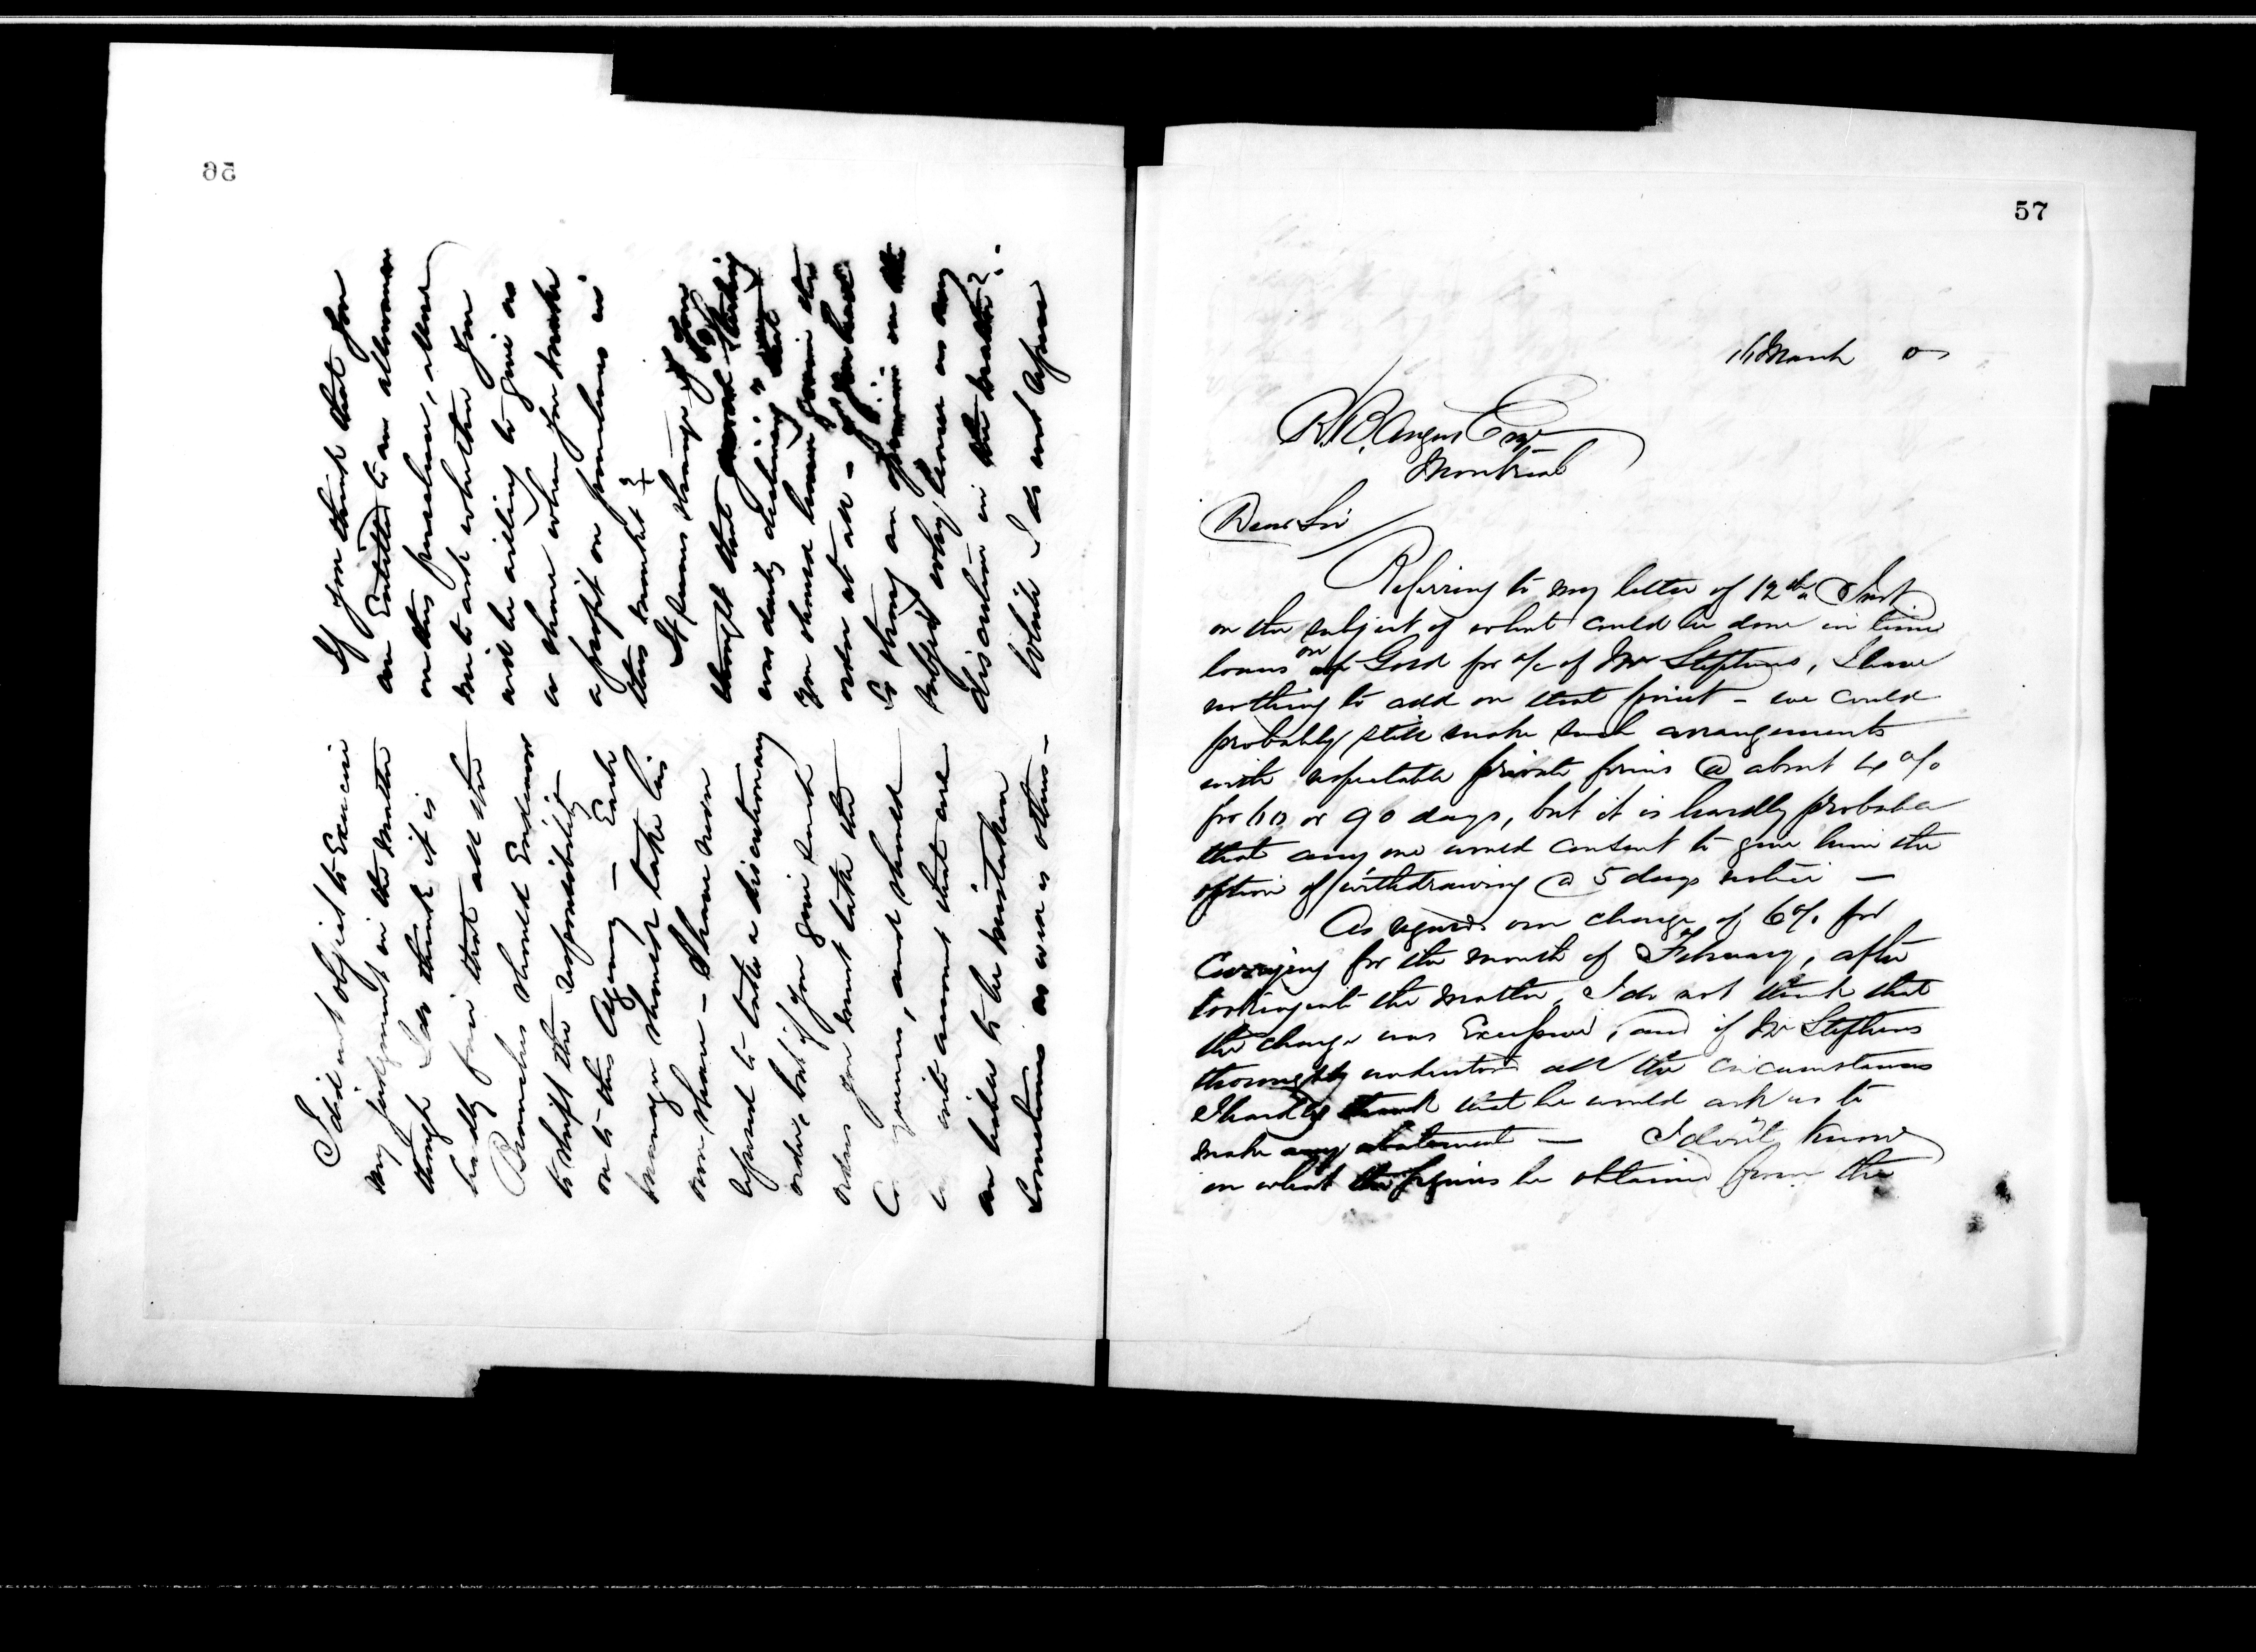 56
I did not object to Exercise
my judgment in the matter
though I do think it is
hardly fair that all the
Branches should Endeavor
to shift the responsibility
on to this Agency — Each
manager should take his
own share — I have never
refused to take a discretionary
order, but if you give such
orders you must take the
and should
into account that
are liable to be mistaken
sometimes as well as others —
If you think that you
are Entitled to an allowance
on this purchase, allow
me to ask whether you
will be willing to give us
a share when you make
a profit on purchases in
this market ?
It seems strange if you
thought that Sterling
was daily declining that
you should have given the
order at all — if you had
so strong an opinion on the
subject why leave us any
discretion in the matter ?
While I do not agree
57
16 March
R. B. Angus Esq
Montreal
Dear Sir
Referring to my letter of 12th Inst
on the subject of what could be done in time
loans on of Gold for a/c of Mr Stephens, I have
nothing to add on that point - we could
probably still make such arrangements
with respectable private firms @ about 4 %
for 60 or 90 days, but it is hardly probable
that any one would consent to give him the
option of withdrawing @ 5 days notice —
As regards our charge of 6% for
Carrying for the month of February, after
looking into the matter, I do not think that
the charge was Excessive, and if Mr Stephens
thoroughly understood all the circumstances
I hardly think that he would ask us to
make any abatement — I don't know
on what the figures he obtained from the